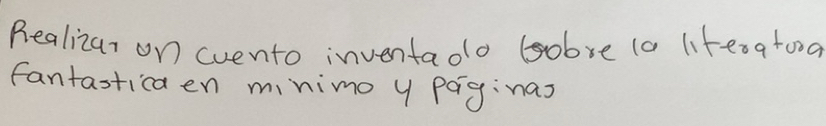 Realizar un cuento inventado sobre la literatura
fantastica en minimo 4 páginas